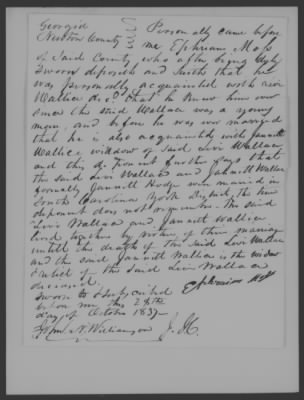 Georgia } Personally came before
Newton County } me Ephraim Moss
of Said County, who after being duly
Sworn deposeth and saith that he
was personally acquainted with Levi
Wallace decd that he knew him ever
since the said Wallace was a young
man, and before he was ever married
that he is also acquainted with Jannett
Wallace widow of Said Levi Wallace
and this deponent further says that
the said Levi Wallace and Jannett Wallace
formally Jannett Hodge were married in
South Carolina York District, the time
deponent does not remember. The said
Levi Wallace and Jannett Wallace
lived together by virtue of their marriage
untill the death of the Said Levi Wallace
and the said Jannett Wallace is the widow
of the Said Levi Wallace
deceased.
Sworn to & subscribed Ephraim Moss
before me this 28th
day of October 1837
N. Williamson J. P.